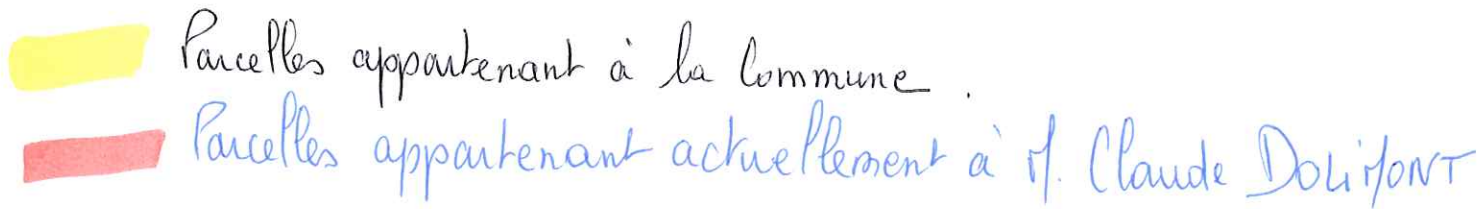 Parcelles appartenant à la Commune.
Parcelles appartenant actuellement à M. Claude DOLIMONT